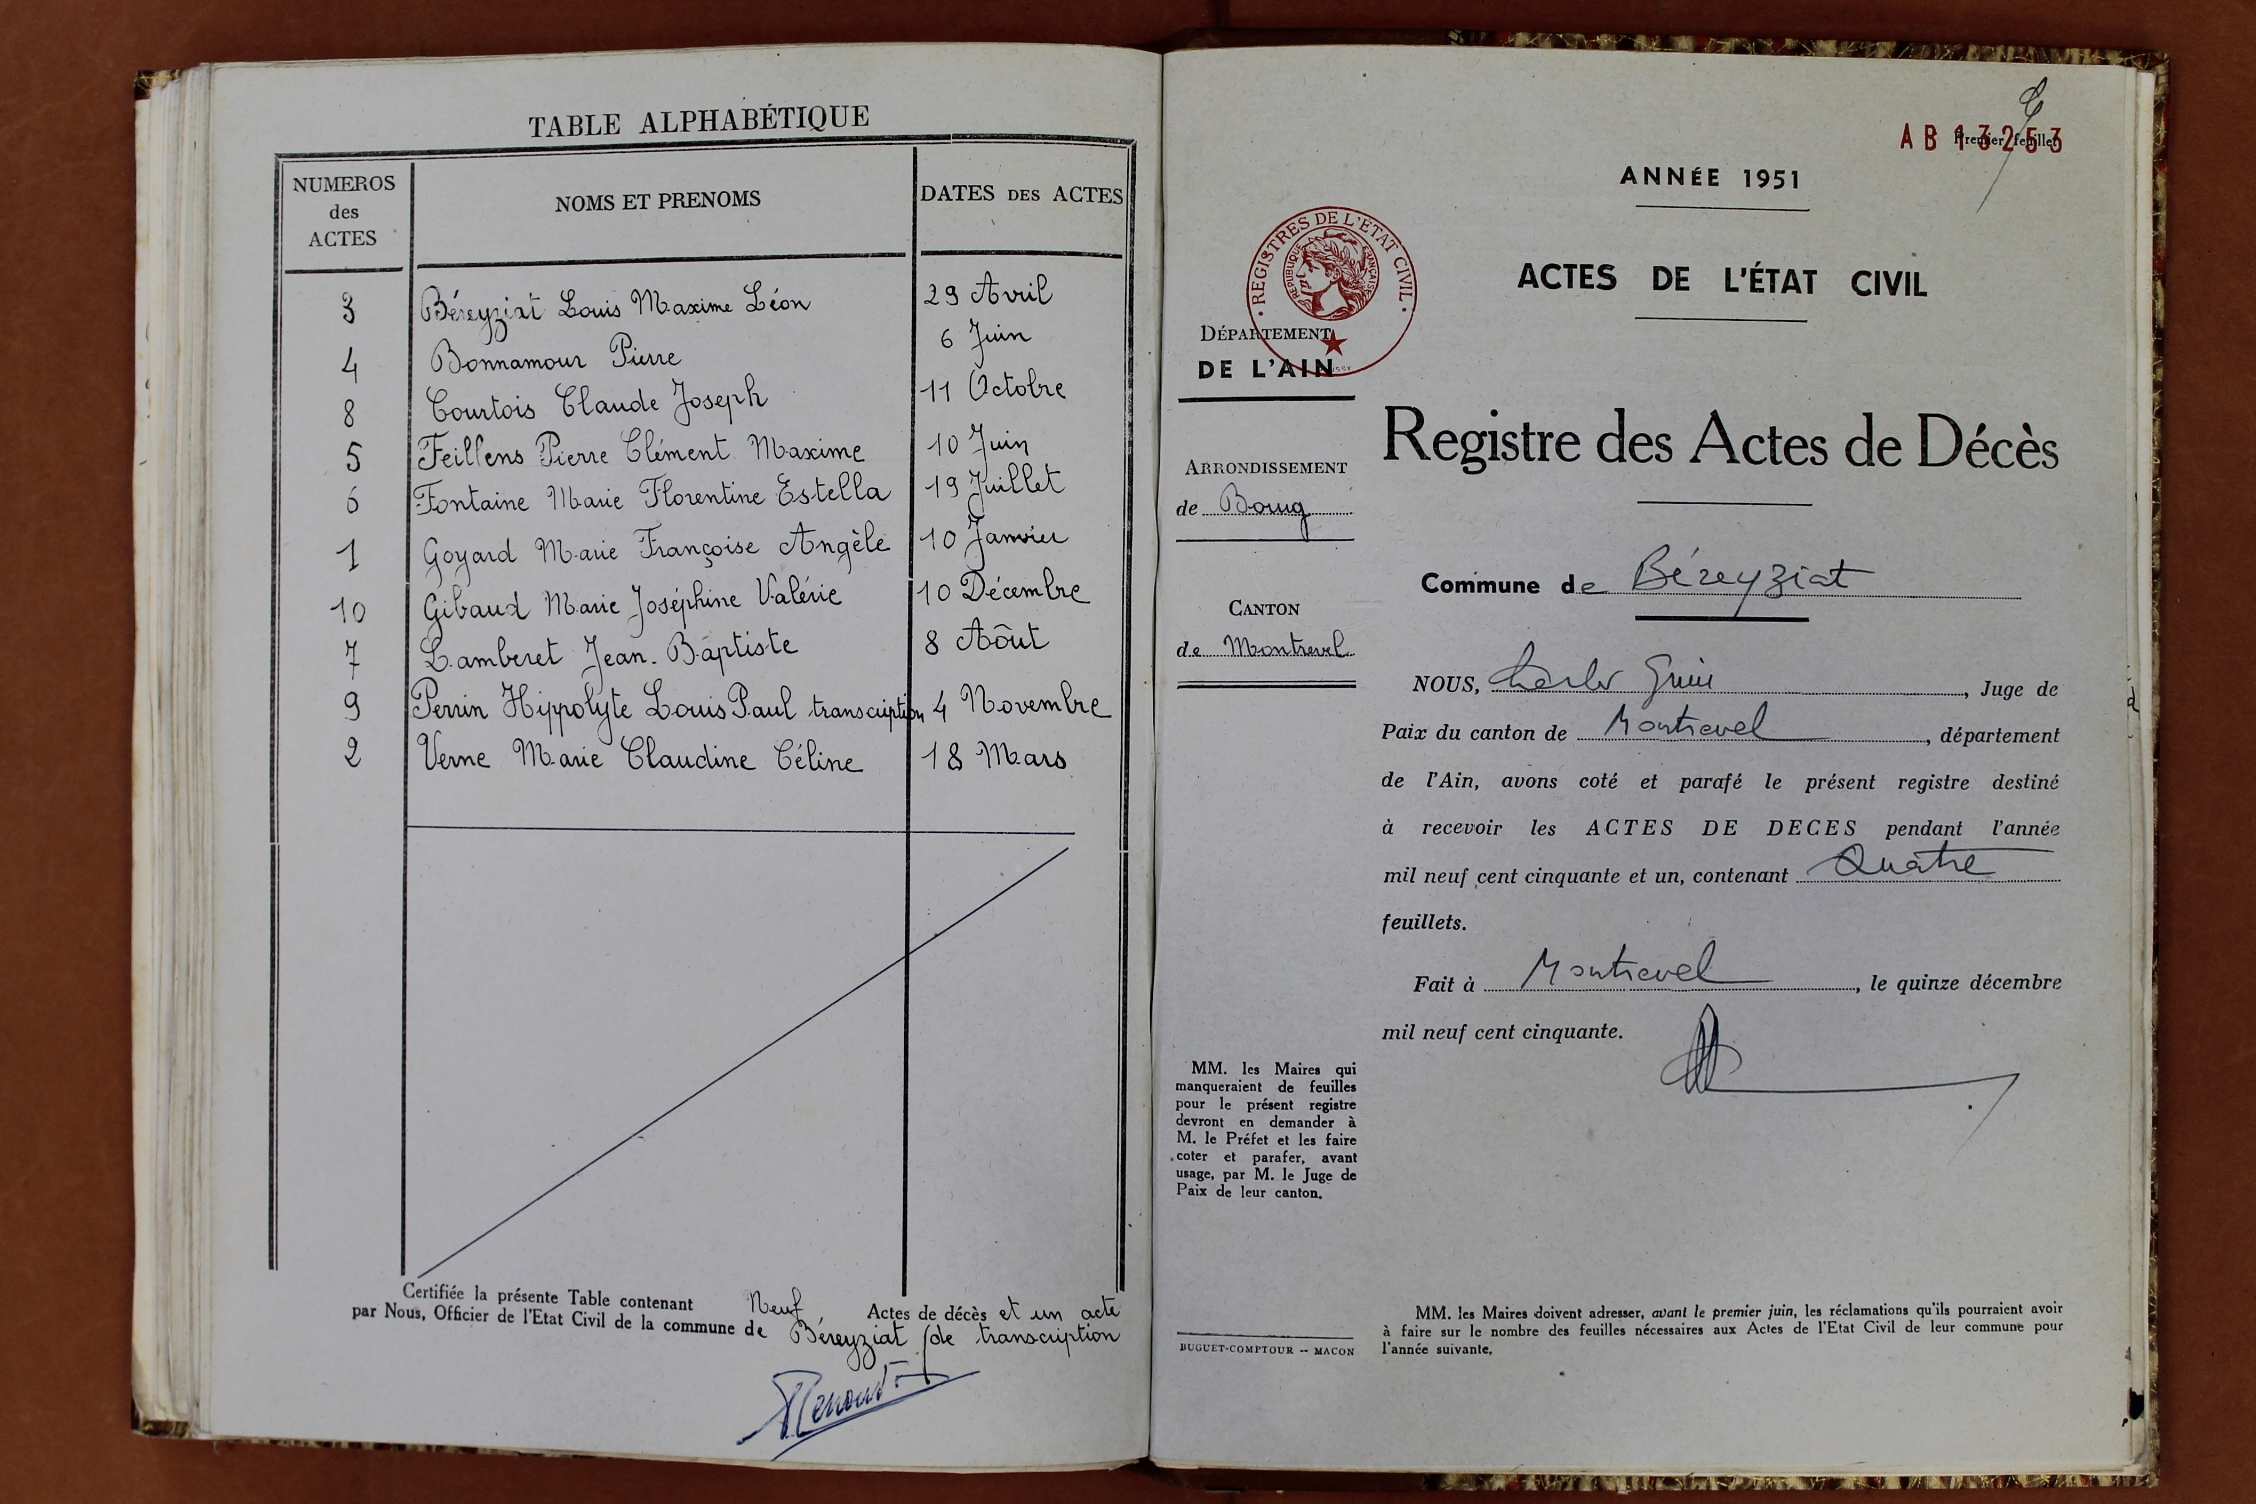 TABLE ALPHABÉTIQUE
NUMEROS
des
ACTES
NOMS ET PRENOMS
DATES DES ACTES
3 Béreyziat Louis Maxime Léon 29 Avril
4 Bonnamour Pierre 6 Juin
8 Courtois Claude Joseph 11 Octobre
5 Feillens Pierre Clément Maxime 10 Juin
6 Fontaine Marie Florentine Estella 19 Juillet
1 Goyard Marie Françoise Angèle 10 Janvier
10 Gibaud Marie Joséphine Valérie 10 Décembre
7 Lamberet Jean-Baptiste 8 Aôut
9 Perrin Hippolyte Louis Paul transcription 4 Novembre
2 Verne Marie Claudine Céline 18 Mars
Certifiée la présente Table contenant Neuf Actes de décès et un acte
par Nous, Officier de l'Etat Civil de la commune de Béreyziat de transcription
AB 13253
Premier feuillet
ANNÉE 1951
REGISTRES DE L'ÉTAT CIVIL
RÉPUBLIQUE FRANÇAISE
ACTES DE L'ÉTAT CIVIL
DÉPARTEMENT
DE L'AIN
Registre des Actes de Décès
ARRONDISSEMENT
de Bourg
Commune de Béreyziat
CANTON
de Montrevel
NOUS, Charles , Juge de
Paix du canton de Montrevel, département
de l'Ain, avons coté et parafé le présent registre destiné
à recevoir les ACTES DE DECES pendant l'année
mil neuf cent cinquante et un, contenant Quatre
feuillets.
Fait à Montrevel, le quinze décembre
mil neuf cent cinquante.
MM. les Maires qui
manqueraient de feuilles
pour le présent registre
devront en demander à
M. le Préfet et les faire
coter et parafer, avant
usage, par M. le Juge de
Paix de leur canton.
BUGUET-COMPTOUR -- MACON
MM. les Maires doivent adresser, avant le premier juin, les réclamations qu'ils pourraient avoir
à faire sur le nombre des feuilles nécessaires aux Actes de l'Etat Civil de leur commune pour
l'année suivante.